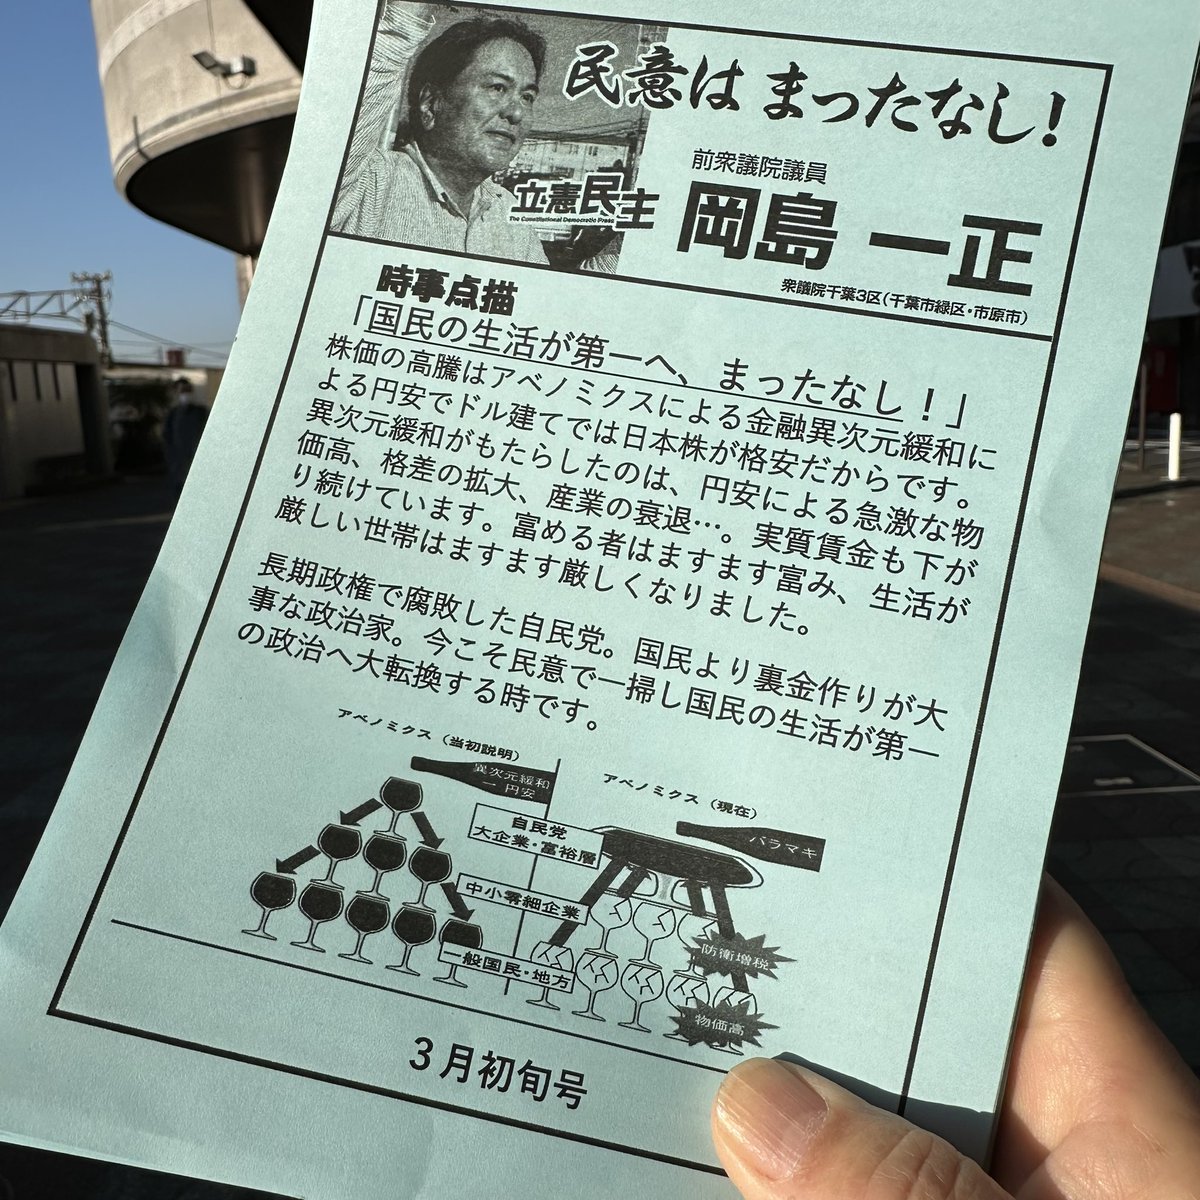 民意は まったなし!
前衆議院議員
立憲民主
The Constitutional Democratic Press
岡島 一正
衆議院千葉3区(千葉市緑区・市原市)
時事点描
「国民の生活が第一へ、まったなし！」
株価の高騰はアベノミクスによる金融異次元緩和に
よる円安でドル建てでは日本株が格安だからです。
異次元緩和がもたらしたのは、円安による急激な物
価高、格差の拡大、産業の衰退…。実質賃金も下が
り続けています。富める者はますます富み、生活が
厳しい世帯はますます厳しくなりました。
長期政権で腐敗した自民党。国民より裏金作りが大
事な政治家。今こそ民意で一掃し国民の生活が第一
の政治へ大転換する時です。
アベノミクス（当初説明）
異次元緩和
円安
アベノミクス（現在）
バラマキ
自民党
大企業・富裕層
中小零細企業
一般国民・地方
防衛増税
物価高
3月初旬号